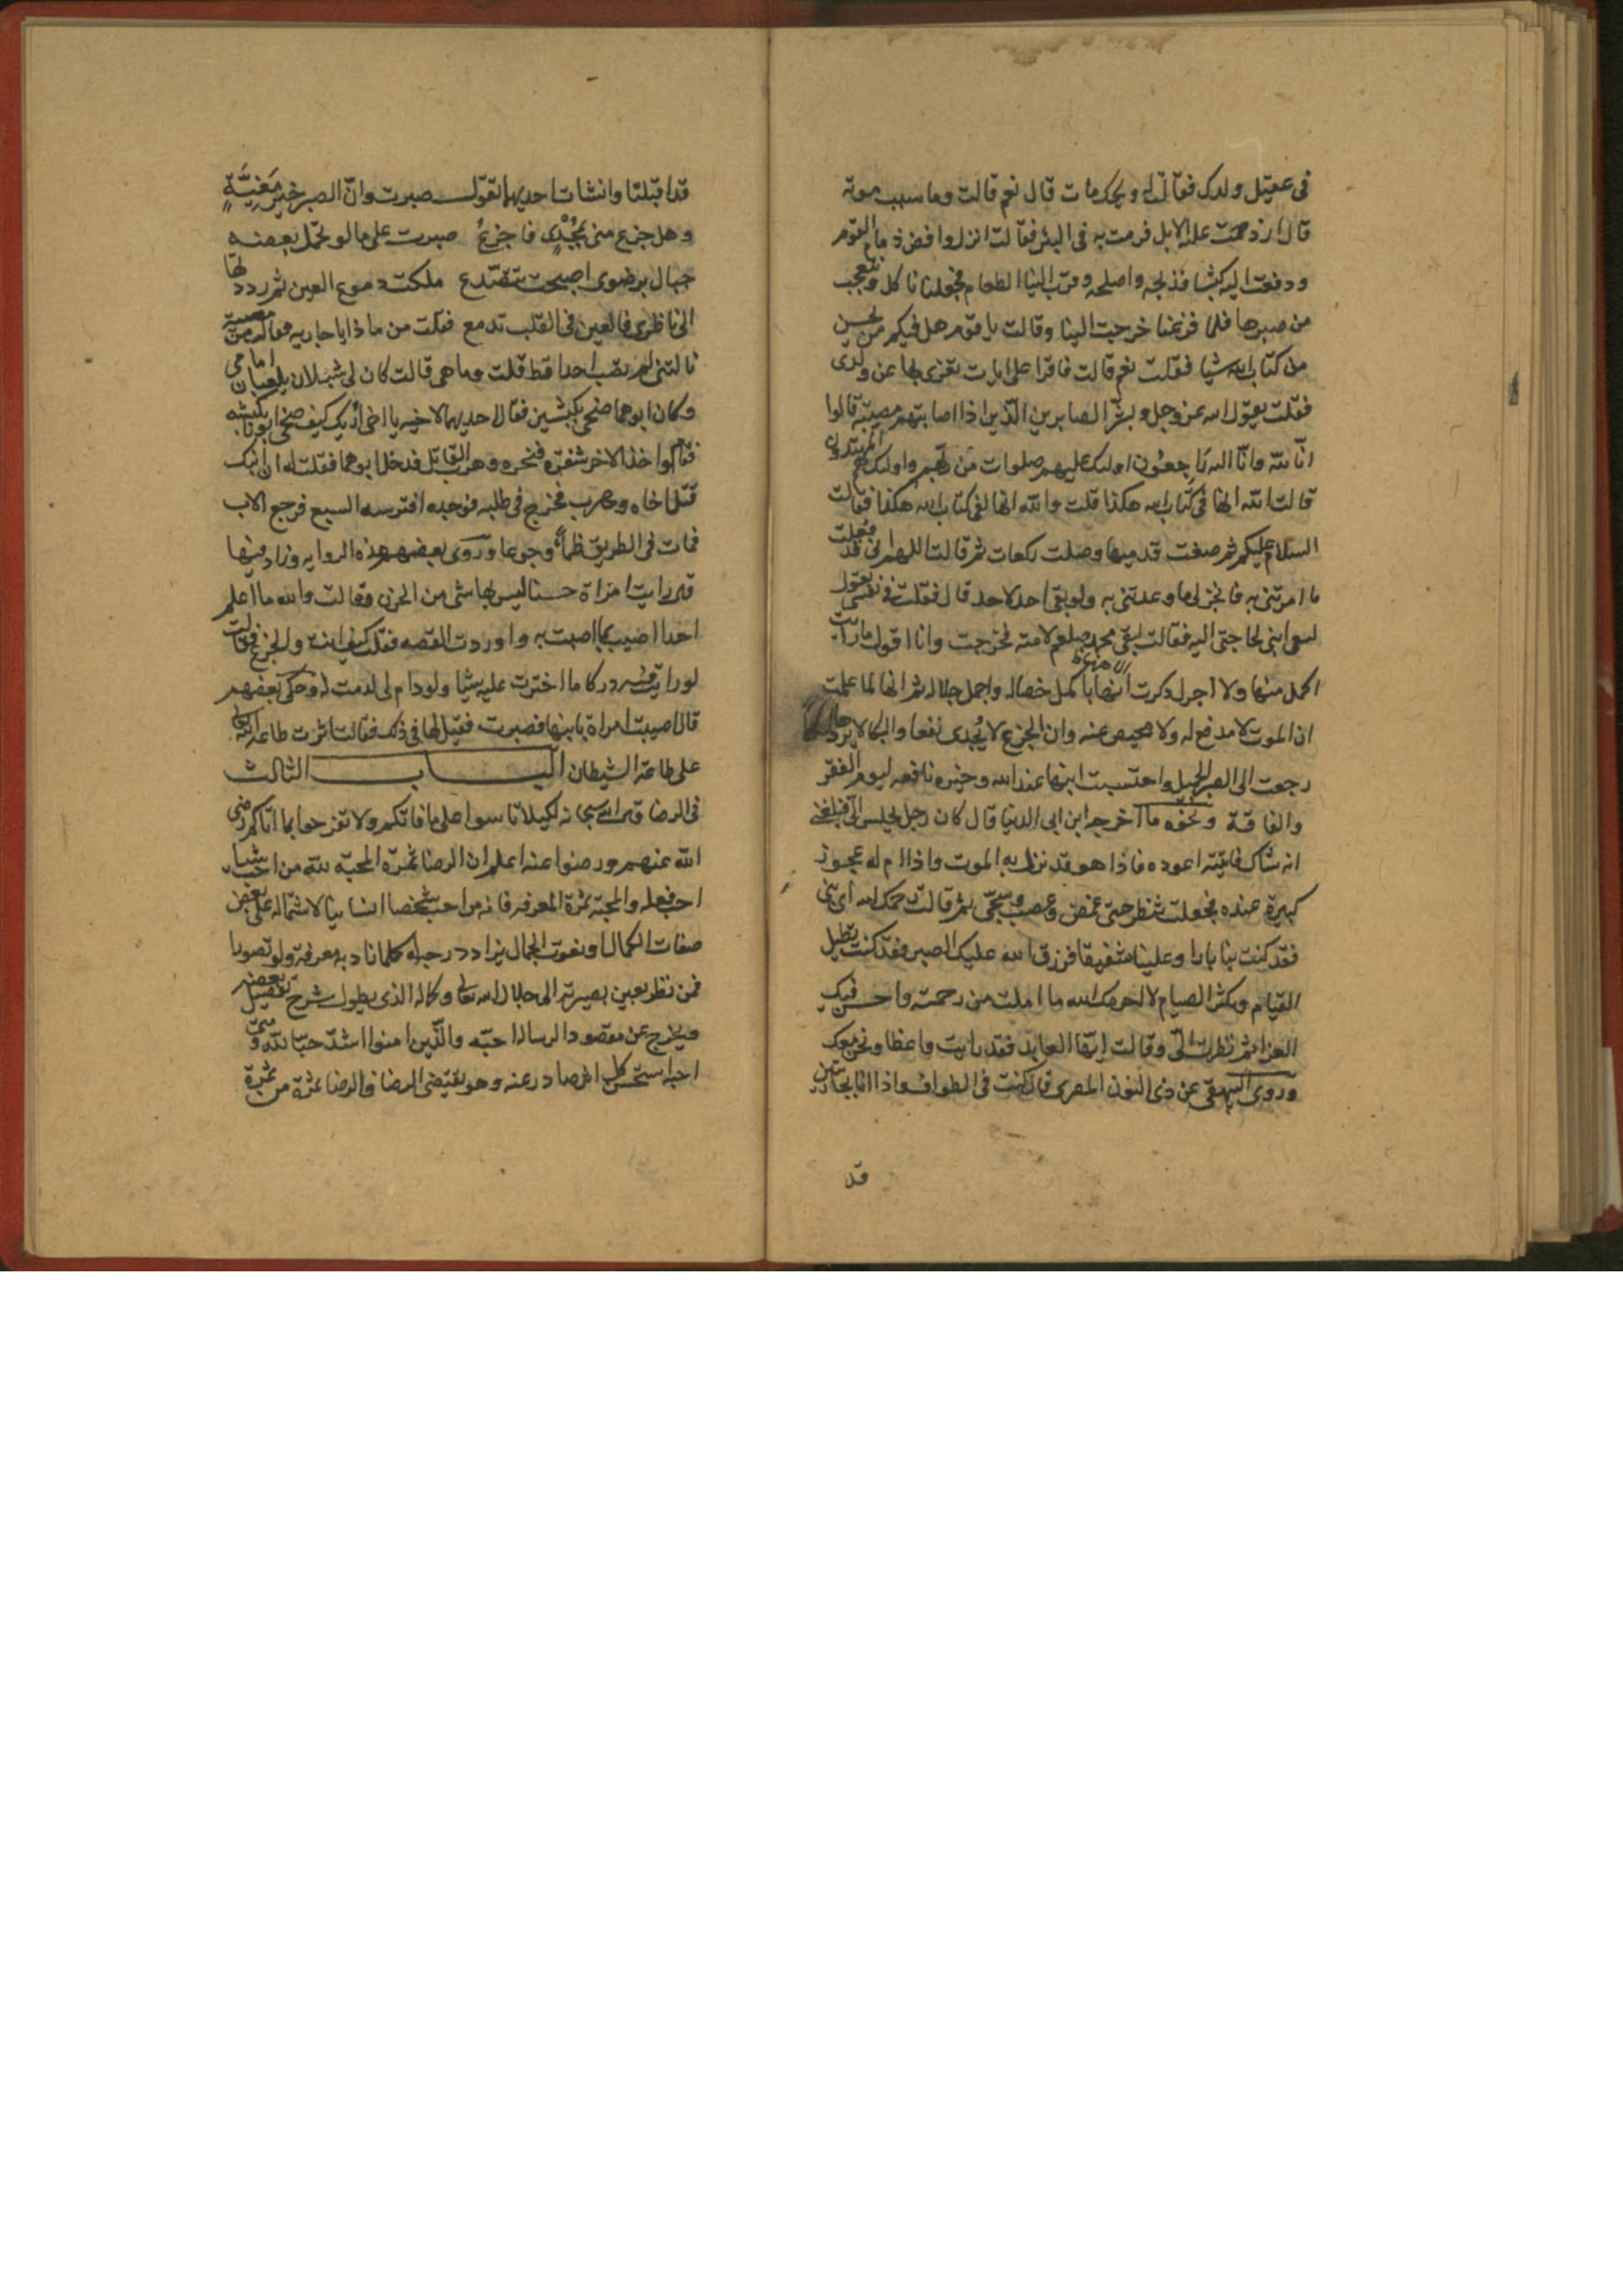 فى عقيل ولدك فقالت له ويحك مات قال نعم قالت وما سبب موته
قال ازدحمت عليه الابل فرمت به فى البئر فقالت انزل واقض ذمام القوم
ودفعت اليه كبشا فذبحه واصلحه وقرب الينا الطعام فجعلنا ناكل ونتعجب
من صبرها فلما فرغنا خرجت الينا وقالت يا قوم هل فيكم من يحسن
من كتاب الله شيا فقلت نعم قالت فاقرا على ايات تعزى بها عن ولدى
فقلت يقول الله عز وجل وبشر الصابرين الذين اذا اصابتهم مصيبة قالوا
انا لله وانا اليه راجعون اولئك عليهم صلوات من ربهم واولئك هم المهتدون
قالت الله انها فى كتاب الله هكذا قلت والله انها لفى كتاب الله هكذا فقالت
السلام عليكم ثم صفت قدميها وصلت ركعات ثم قالت اللهم انى قد فعلت
ما امرتنى به فانجز لى ما وعدتنى به ولو بقى احد لاحد قال فقلت فى نفسى تقول
لبقى ابنى لحاجتى اليه فقالت لبقى محمد صلعم لامته فخرجت وانا اقول ما رايت
اكمل منها ولا اجزل ذكرت ربها باكمل خصاله واجمل جلاله ثم انها لما علمت
ان الموت لا مدفع له ولا محيص عنه وان الجزع لا يجدى نفعا والبكا لا يرد
رجعت الى الصبر الجميل واحتسبت ابنها عند الله وخيره نافعه ليوم الفقر
والفاقة ونحوه ما اخرجه ابن ابى الدنيا قال كان رجل يجلس الىّ فبلغنى
انه شاك فاتيته اعوده فاذا هو قد نزل به الموت واذا ام له عجوز
كبيرة عنده فجعلت تنظر حتى غمض وعصب وسجى ثم قالت رحمك الله اى بنى
فقد كنت بنا بارا وعلينا شفيقا فرزق الله عليك الصبر فقد كنت تطيل
القيام وتكثر الصيام لا احرمك الله ما املت من رحمته واحسن فيك
العزا ثم نظرت الىّ وقالت ايها العايد فقد رايت واعظا ونحن معك
وروى البيهقى عن ذى النون المصرى قال كنت فى الطواف واذا انا بجاريتين
قد
قد اقبلتا وانشات احديهما تقول صبرت وان الصبر خير مغبّة
وهل جزع منى يُجْدى فاجزع صبرت على ما لو تحمل بعضه
جبال برضوى اصبحت تتصدع ملكت دموع العين ثم رددتها
الى ناظرى فالعين فى القلب تدمع فقلت من ماذا يا جاريه فقالت من مصيبة
نالتنى لم تصب احدا قط قلت وما هى قالت كان لى شبلان يلعبان امامى
وكان ابوهما ضحى بكبشين فقال احديهما لاخيه يا اخى اريك كيف ضحى ابونا بكبشه
فقام واخذ الاخر شفرة فنحره وهرب القاتل فدخل ابوهما فقلت له ان ابنك
قتل اخاه وهرب فخرج فى طلبه فوجده افترسه السبع فرجع الاب
فمات فى الطريق ظمأ وجوعا وروى بعضهم هذه الروايه وزاد فيها
قال رايت امراة حسنا ليس بها شى من الحزن وقالت والله ما اعلم
احدا اصيب بما اصبت به واوردت القصه فقلت كيف انت والجزع فقالت
لو رايت فيه دركا ما اخترت عليه شيا ولو دام لى لدمت له وحكى بعضهم
قال اصيبت امراة بابنها فصبرت فقيل لها فى ذلك فقالت اثرت طاعة الله
على طاعة الشيطان البـــاب الثالث
فى الرضا قال الله سبحانه لكيلا تاسوا على ما فاتكم ولا تفرحوا بما اتاكم رضى
الله عنهم ورضوا عنه اعلم ان الرضا ثمرة المحبة لله من احب شيا
احب فعله والمحبة ثمرة المعرفه فانه من احب شخصا انسانيا لاشتماله على بعض
صفات الكمال او نعوت الجمال يزداد حبه له كلما زاد به معرفة وله تصورا
فمن نظر بعين بصيرته الى جلال الله تعالى وكماله الذى يطول شرح تفصيل بعضه
ويخرج عن مقصود الرساله احبه والذين امنوا اشد حبا لله ومتى
احبه استحسن كل اثر صادر عنه وهو يقتضى الرضا فالرضا ثمرة من ثمرة